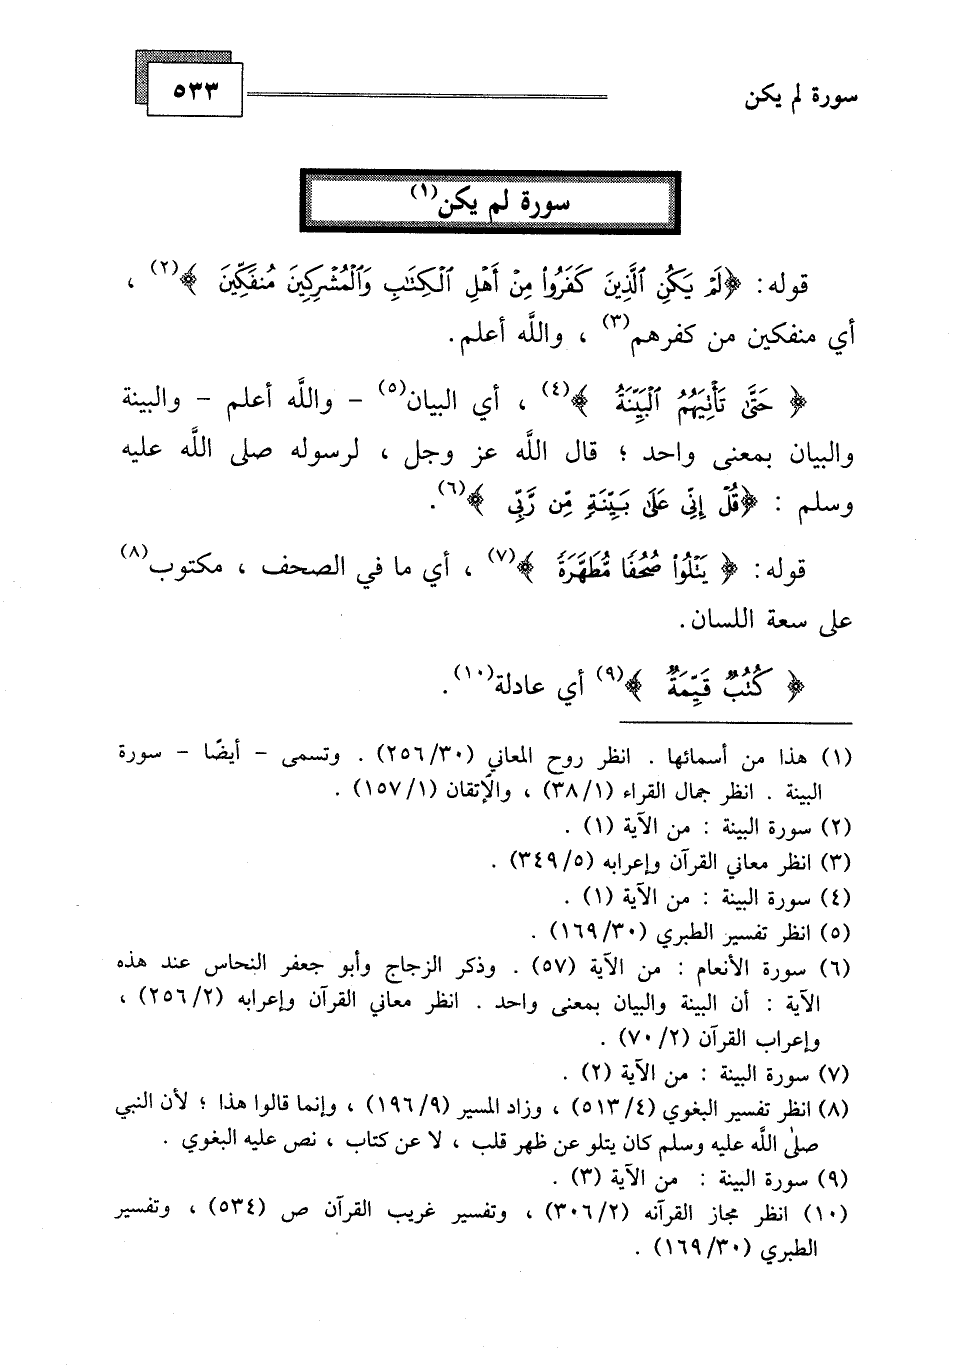 سورة لم يكن
٥٣٣
سورة لم يكن(١)
قوله: ﴿لَمْ يَكُنِ ٱلَّذِينَ كَفَرُوا۟ مِنْ أَهْلِ ٱلْكِتَٰبِ وَٱلْمُشْرِكِينَ مُنفَكِّينَ ﴾(٢) ،
أي منفكين من كفرهم(٣) ، واللَّه أعلم.
﴿ حَتَّىٰ تَأْتِيَهُمُ ٱلْبَيِّنَةُ ﴾(٤) ، أي البيان(٥) - واللَّه أعلم - والبينة
والبيان بمعنى واحد ؛ قال اللَّه عز وجل ، لرسوله صلى اللَّه عليه
وسلم : ﴿قُلْ إِنِّى عَلَىٰ بَيِّنَةٍ مِّن رَّبِّى ﴾(٦).
قوله: ﴿ يَتْلُوا۟ صُحُفًا مُّطَهَّرَةً ﴾(٧) ، أي ما في الصحف ، مكتوب(٨)
على سعة اللسان.
﴿ كُتُبٌ قَيِّمَةٌ ﴾(٩) أي عادلة(١٠).
(١) هذا من أسمائها . انظر روح المعاني (٢٥٦/٣٠) . وتسمى - أيضًا - سورة
البينة . انظر جمال القراء (٣٨/١) ، والإتقان (١٥٧/١) .
(٢) سورة البينة : من الآية (١) .
(٣) انظر معاني القرآن وإعرابه (٣٤٩/٥) .
(٤) سورة البينة : من الآية (١) .
(٥) انظر تفسير الطبري (١٦٩/٣٠) .
(٦) سورة الأنعام : من الآية (٥٧) . وذكر الزجاج وأبو جعفر النحاس عند هذه
الآية : أن البينة والبيان بمعنى واحد . انظر معاني القرآن وإعرابه (٢٥٦/٢) ،
وإعراب القرآن (٧٠/٢) .
(٧) سورة البينة : من الآية (٢) .
(٨) انظر تفسير البغوي (٥١٣/٤) ، وزاد المسير (١٩٦/٩) ، وإنما قالوا هذا ؛ لأن النبي
صلى اللَّه عليه وسلم كان يتلو عن ظهر قلب ، لا عن كتاب ، نص عليه البغوي .
(٩) سورة البينة : من الآية (٣) .
(١٠) انظر مجاز القرآنه (٣٠٦/٢) ، وتفسير غريب القرآن ص (٥٣٤) ، وتفسير
الطبري (١٦٩/٣٠) .